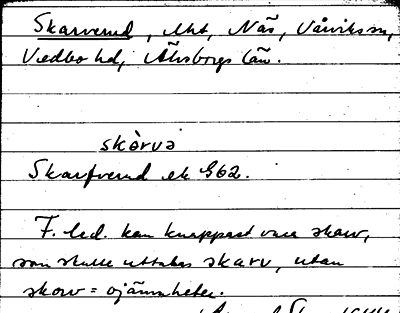 Skarverud, lht, Näs, Vårviks sn,
Vedbo hd, Älvsborgs län.
skòrvə
Skarfverud ek G62.
F. led. kan knappast vara skarv,
som skulle uttalas skarv, utan
skorv = ojämnheter.